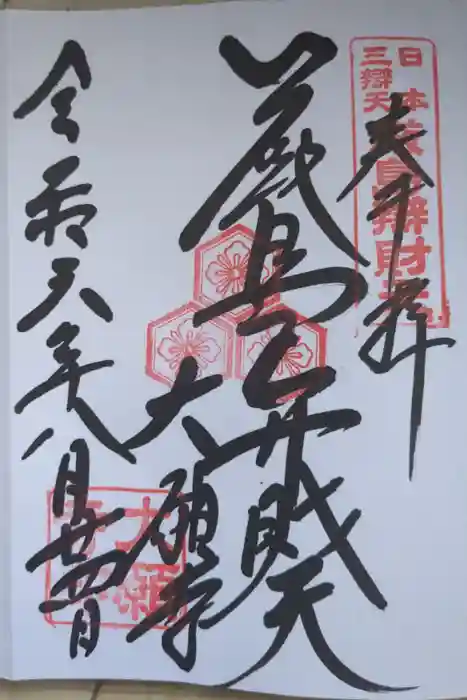 奉拝
日本三辯天
嚴島辯財天
厳島弁財天
大願寺
令和六年八月廿四日
大願